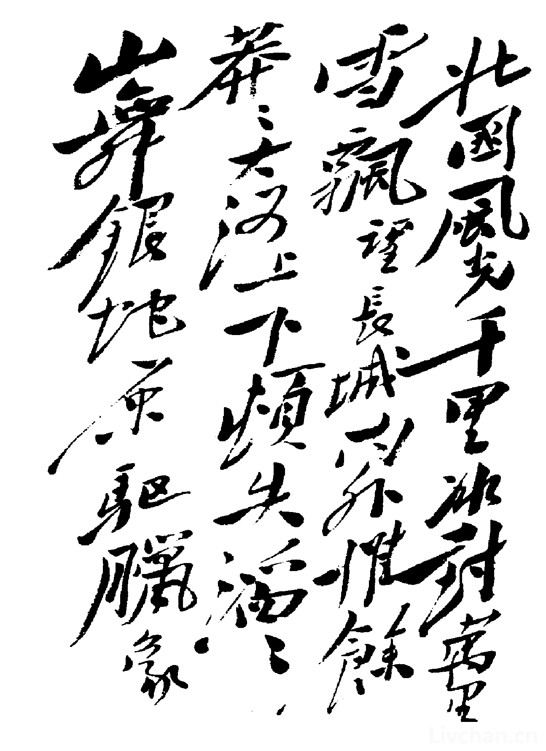 北國風光千里冰封萬里
雪飄望長城內外惟餘
莽〻大河上下頓失滔〻
山舞銀蛇原驅臘象
Livchan.cn